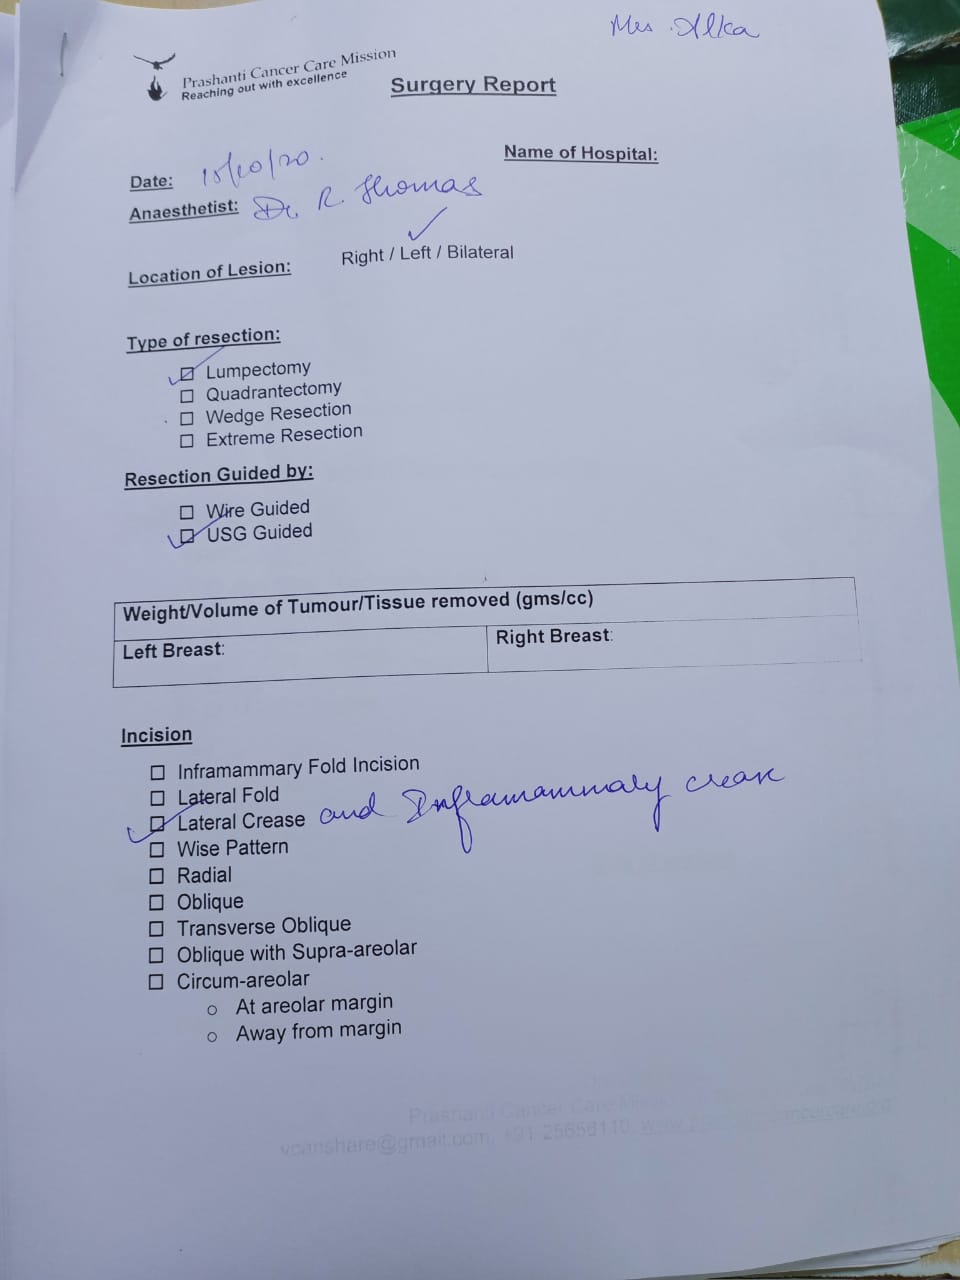 Mrs. Alka
Prashanti Cancer Care Mission
Reaching out with excellence
Surgery Report
Name of Hospital:
Date: 15/10/20.
Anaesthetist: Dr. R. Thomas
Location of Lesion: Right / Left / Bilateral
Type of resection:
Lumpectomy
Quadrantectomy
Wedge Resection
Extreme Resection
Resection Guided by:
Wire Guided
USG Guided
Weight/Volume of Tumour/Tissue removed (gms/cc)
Left Breast: Right Breast:
Incision
Inframammary Fold Incision
Lateral Fold
Lateral Crease and Inframammaly crease
Wise Pattern
Radial
Oblique
Transverse Oblique
Oblique with Supra-areolar
Circum-areolar
At areolar margin
Away from margin
Prashanti Cancer Care
vcanshare@gmail.com, +91 25656110,